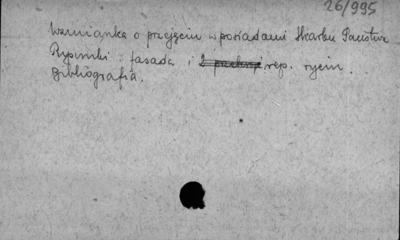 26/995
Wzmianka o przejęciu w posiadanie Skarbu Państwa
Rysunki : fasada i rep. rycin.
Bibliografia.